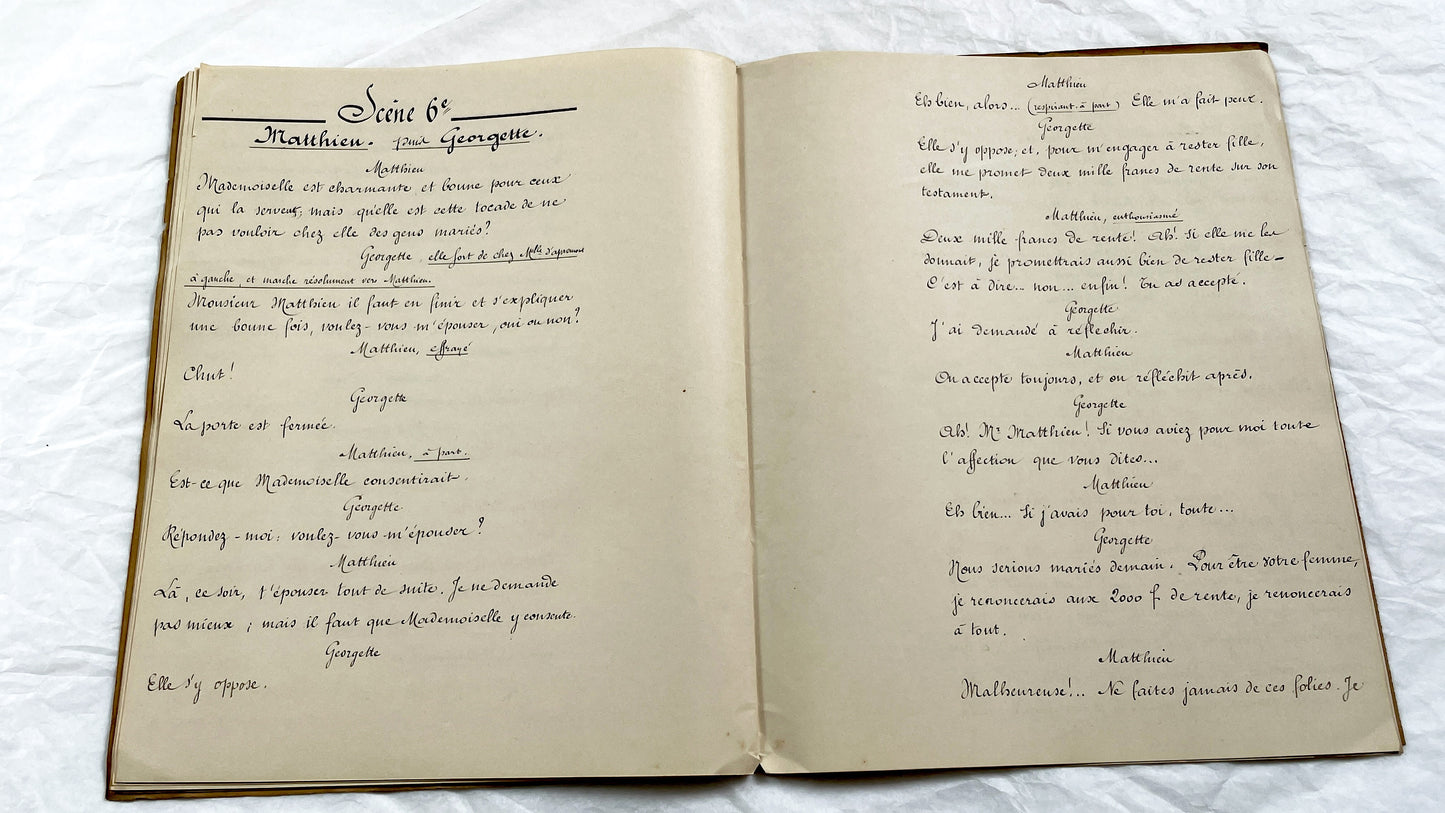 Scène 6e
Matthieu. puis Georgette.
Matthieu
Mademoiselle est charmante et bonne pour ceux
qui la servent; mais qu'elle est cette tocade de ne
pas vouloir chez elle des gens mariés?
Georgette, elle sort de chez Melle d'apremont
à gauche, et marche résolument vers Matthieu.
Monsieur Matthieu il faut en finir et s'expliquer
une bonne fois, voulez-vous m'épouser, oui ou non?
Matthieu, effrayé
Chut!
Georgette
La porte est fermée.
Matthieu, à part.
Est-ce que Mademoiselle consentirait.
Georgette
Répondez-moi: voulez-vous m'épouser?
Matthieu
Là, ce soir, t'épouser tout de suite. Je ne demande
pas mieux; mais il faut que Mademoiselle y consente.
Georgette
Elle s'y oppose.
Matthieu
Eh bien, alors... (respirant à part) Elle m'a fait peur.
Georgette
Elle s'y oppose; et, pour m'engager à rester fille,
elle me promet deux mille francs de rente sur son
testament.
Matthieu, enthousiasmé
Deux mille francs de rente! Ah! Si elle me les
donnait, je promettrais aussi bien de rester fille—
C'est à dire... non... enfin! Tu as accepté.
Georgette
J'ai demandé à réfléchir.
Matthieu
On accepte toujours, et on réfléchit après.
Georgette
Ah! Mr Matthieu! Si vous aviez pour moi toute
l'affection que vous dites...
Matthieu
Eh bien... Si j'avais pour toi, toute...
Georgette
Nous serions mariés demain. Pour être votre femme,
je renoncerais aux 2000 f. de rente, je renoncerais
à tout.
Matthieu
Malheureuse!.. Ne faites jamais de ces folies. Je